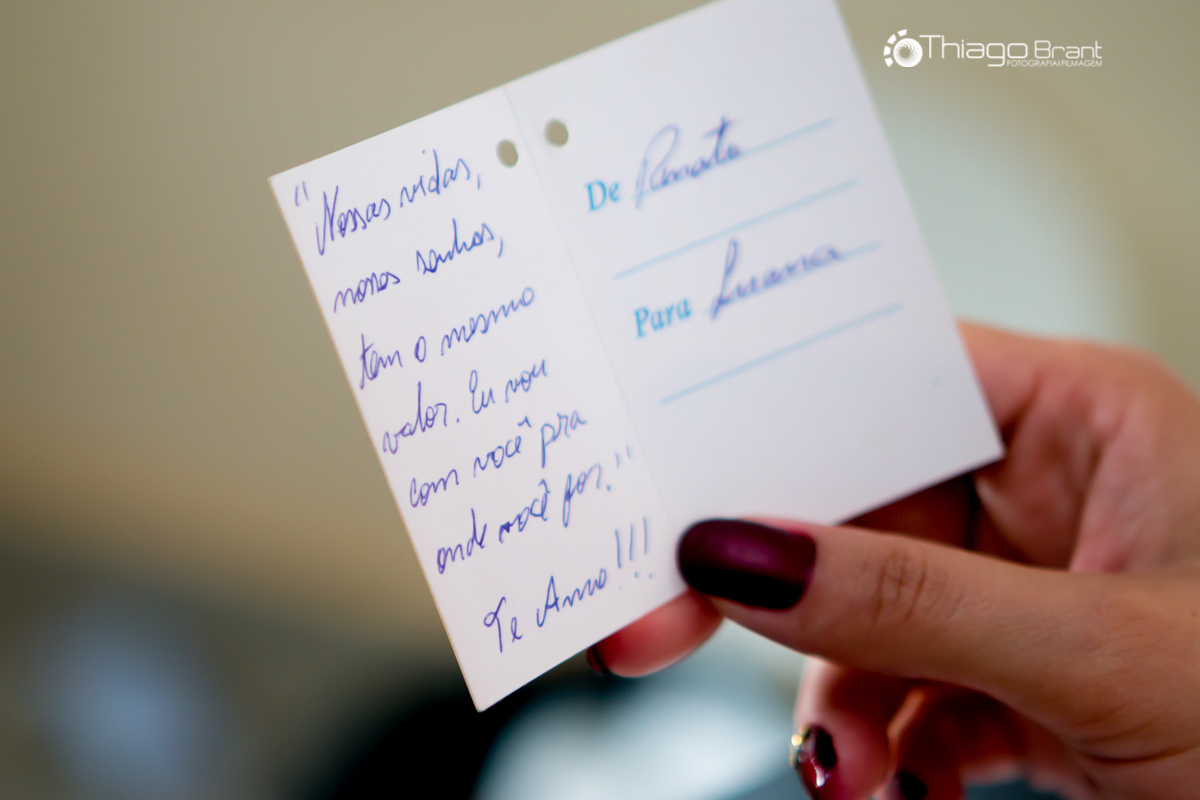 "Nossas vidas,
nossos sonhos,
tem o mesmo
valor. Eu vou
com você pra
onde você for."
Te Amo!!!
De Renato
Para Luanna
Thiago Brant
FOTOGRAFIA|FILMAGEM